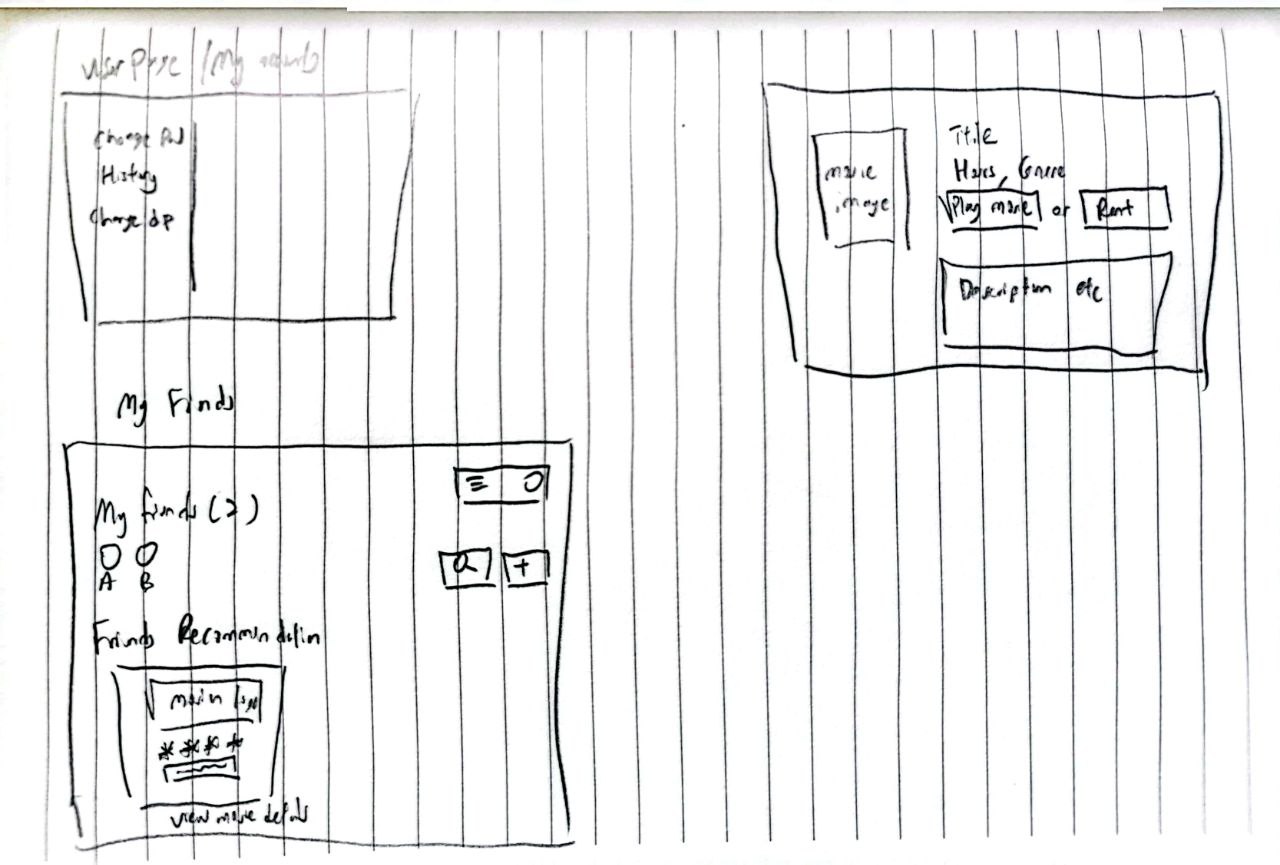 User Page / My accounts
Change Pwd
History
Change dp
My Friends
My friends (2)
A B
+
Friends Recommendation
* * * *
view movie details
movie
image
Title
Hours, Genre
Play movie or Rent
Description etc